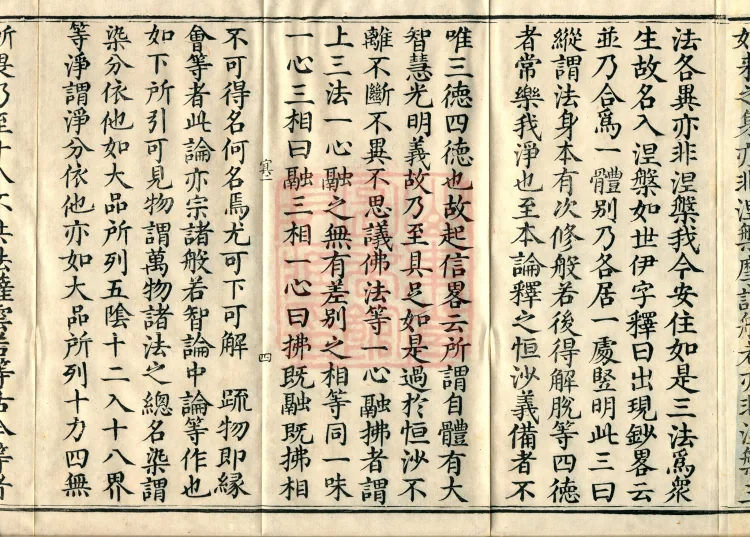 如來之身亦非涅槃摩訶般若亦非涅槃三
法各異亦非涅槃我今安住如是三法爲衆
生故名入涅槃如世伊字釋曰出現鈔畧云
並乃合爲一體別乃各居一處竪明此三曰
縱謂法身本有次修般若後得解脫等四德
者常樂我淨也至本論釋之恒沙義備者不
唯三德四德也故起信畧云所謂自體有大
智慧光明義故乃至具足如是過於恒沙不
離不斷不異不思議佛法等一心融拂者謂
上三法一心融之無有差別之相等同一味
一心三相曰融三相一心曰拂既融既拂相
寘一 四
不可得名何名焉尤可下可解　疏物即緣
會等者此論亦宗諸般若智論中論等作也
如下所引可見物謂萬物諸法之總名染謂
染分依他如大品所列五陰十二入十八界
等淨謂淨分依他亦如大品所列十力四無
所畏乃至十八不共法薩雲若等古今等者